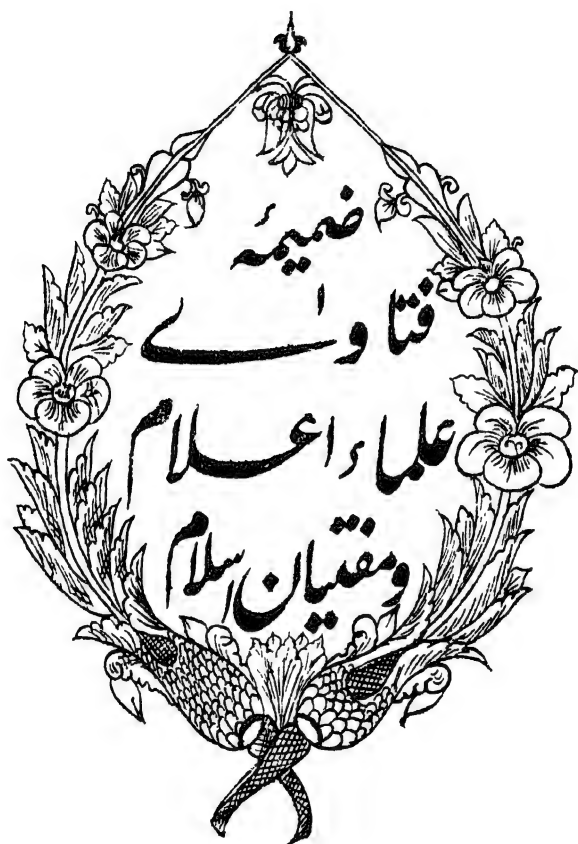 ضمیمۂ
فتاوےٰ
علماء اعلام
و مفتیان اسلام